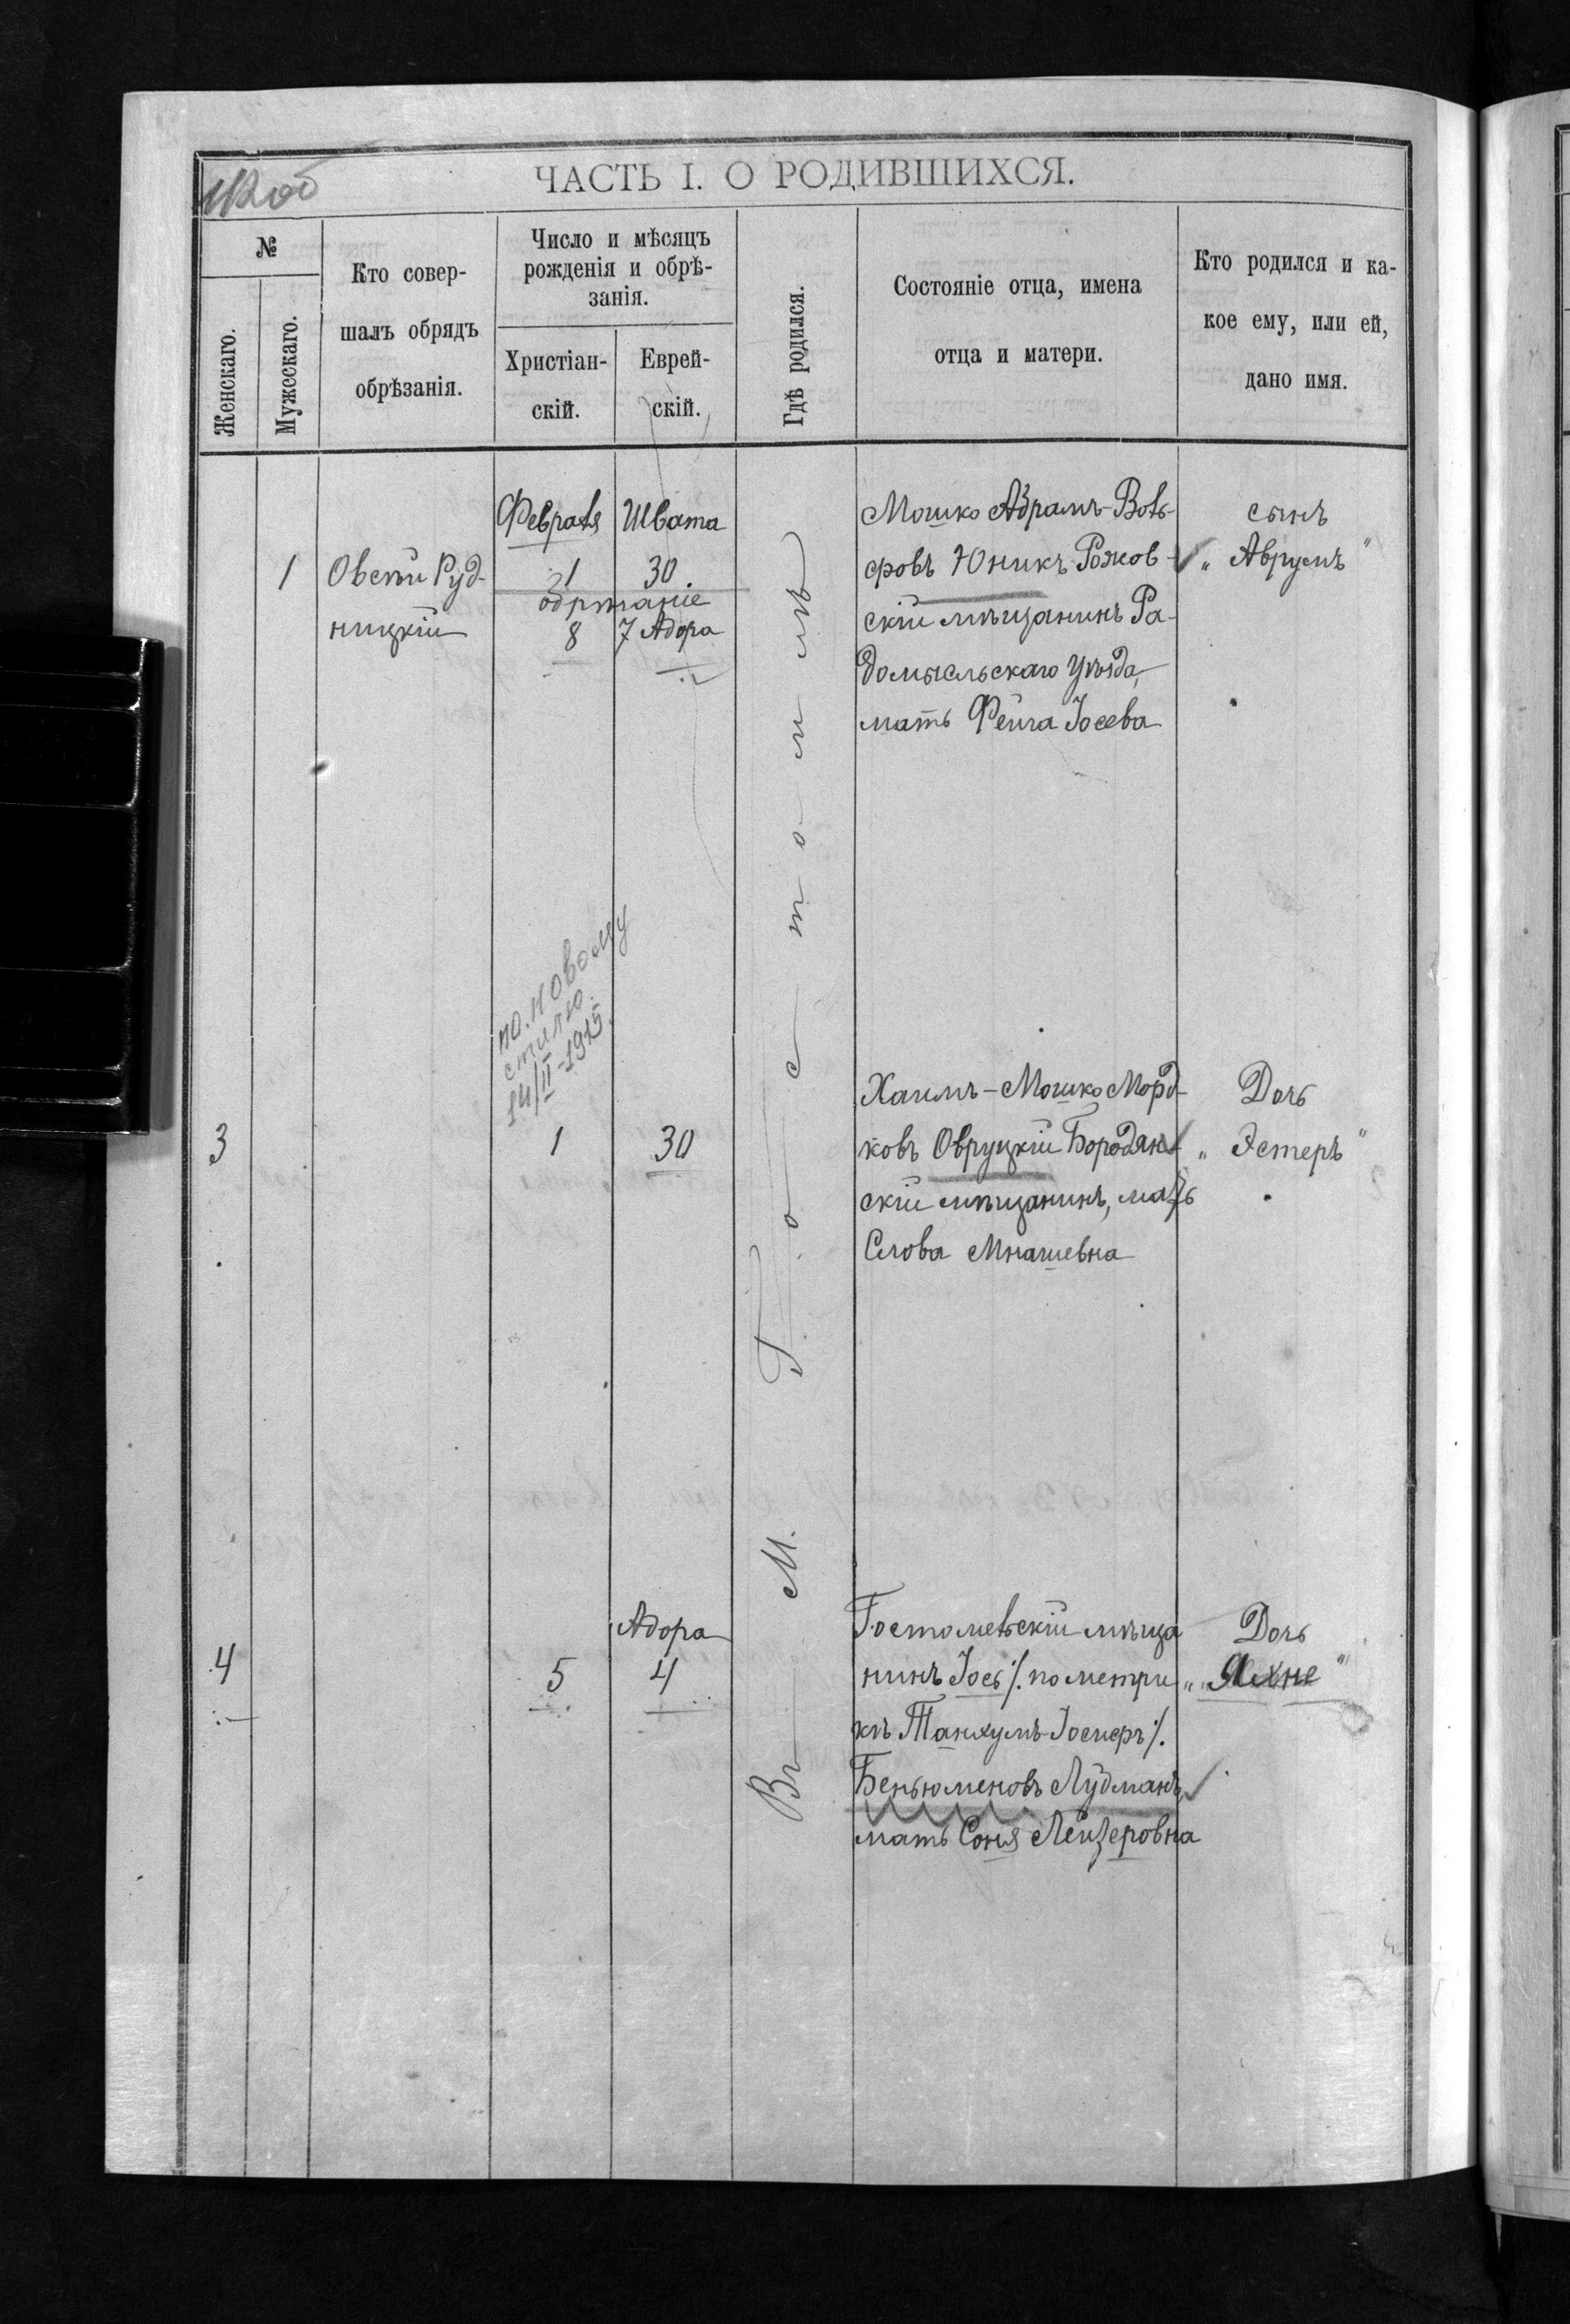 ЧАСТЬ I. О РОДИВШИХСЯ.
№
Женскаго.
Мужескаго.
Кто совер-
шалъ обрядъ
обрѣзанія.
Число и мѣсяцъ
рожденія и обрѣ-
занія.
Христіан-
скій.
Еврей-
скій.
Гдѣ родился.
Состояніе отца, имена
отца и матери.
Кто родился и ка-
кое ему, или ей,
дано имя.
Въ М. Гостомлѣ
1
Овсѣй Руд-
ницкій
Февраля
1
обрѣзаніе
8
Швата
30
7 Адора
Мошко Абрамъ-Воль-
фовъ Юникъ Рожов-
скій мѣщанинъ Ра-
домысльскаго уѣзда,
мать Фейга Іосева
сынъ
„Аврумъ"
по новому
стилю
14/II-1915
3
1
30
Хаимъ-Мошко Морд-
ковъ Овруцкій Бородян-
скій мѣщанинъ, мать
Слова Мнашевна
Дочь
„Эстеръ"
4
5
Адора
4
Гостомельскій мѣща
нинъ Іось /. по метри
кѣ Танхумъ-Іосифъ /.
Беньюменовъ Лудманъ,
мать Соня Лейзеровна
Дочь
„Яхне"